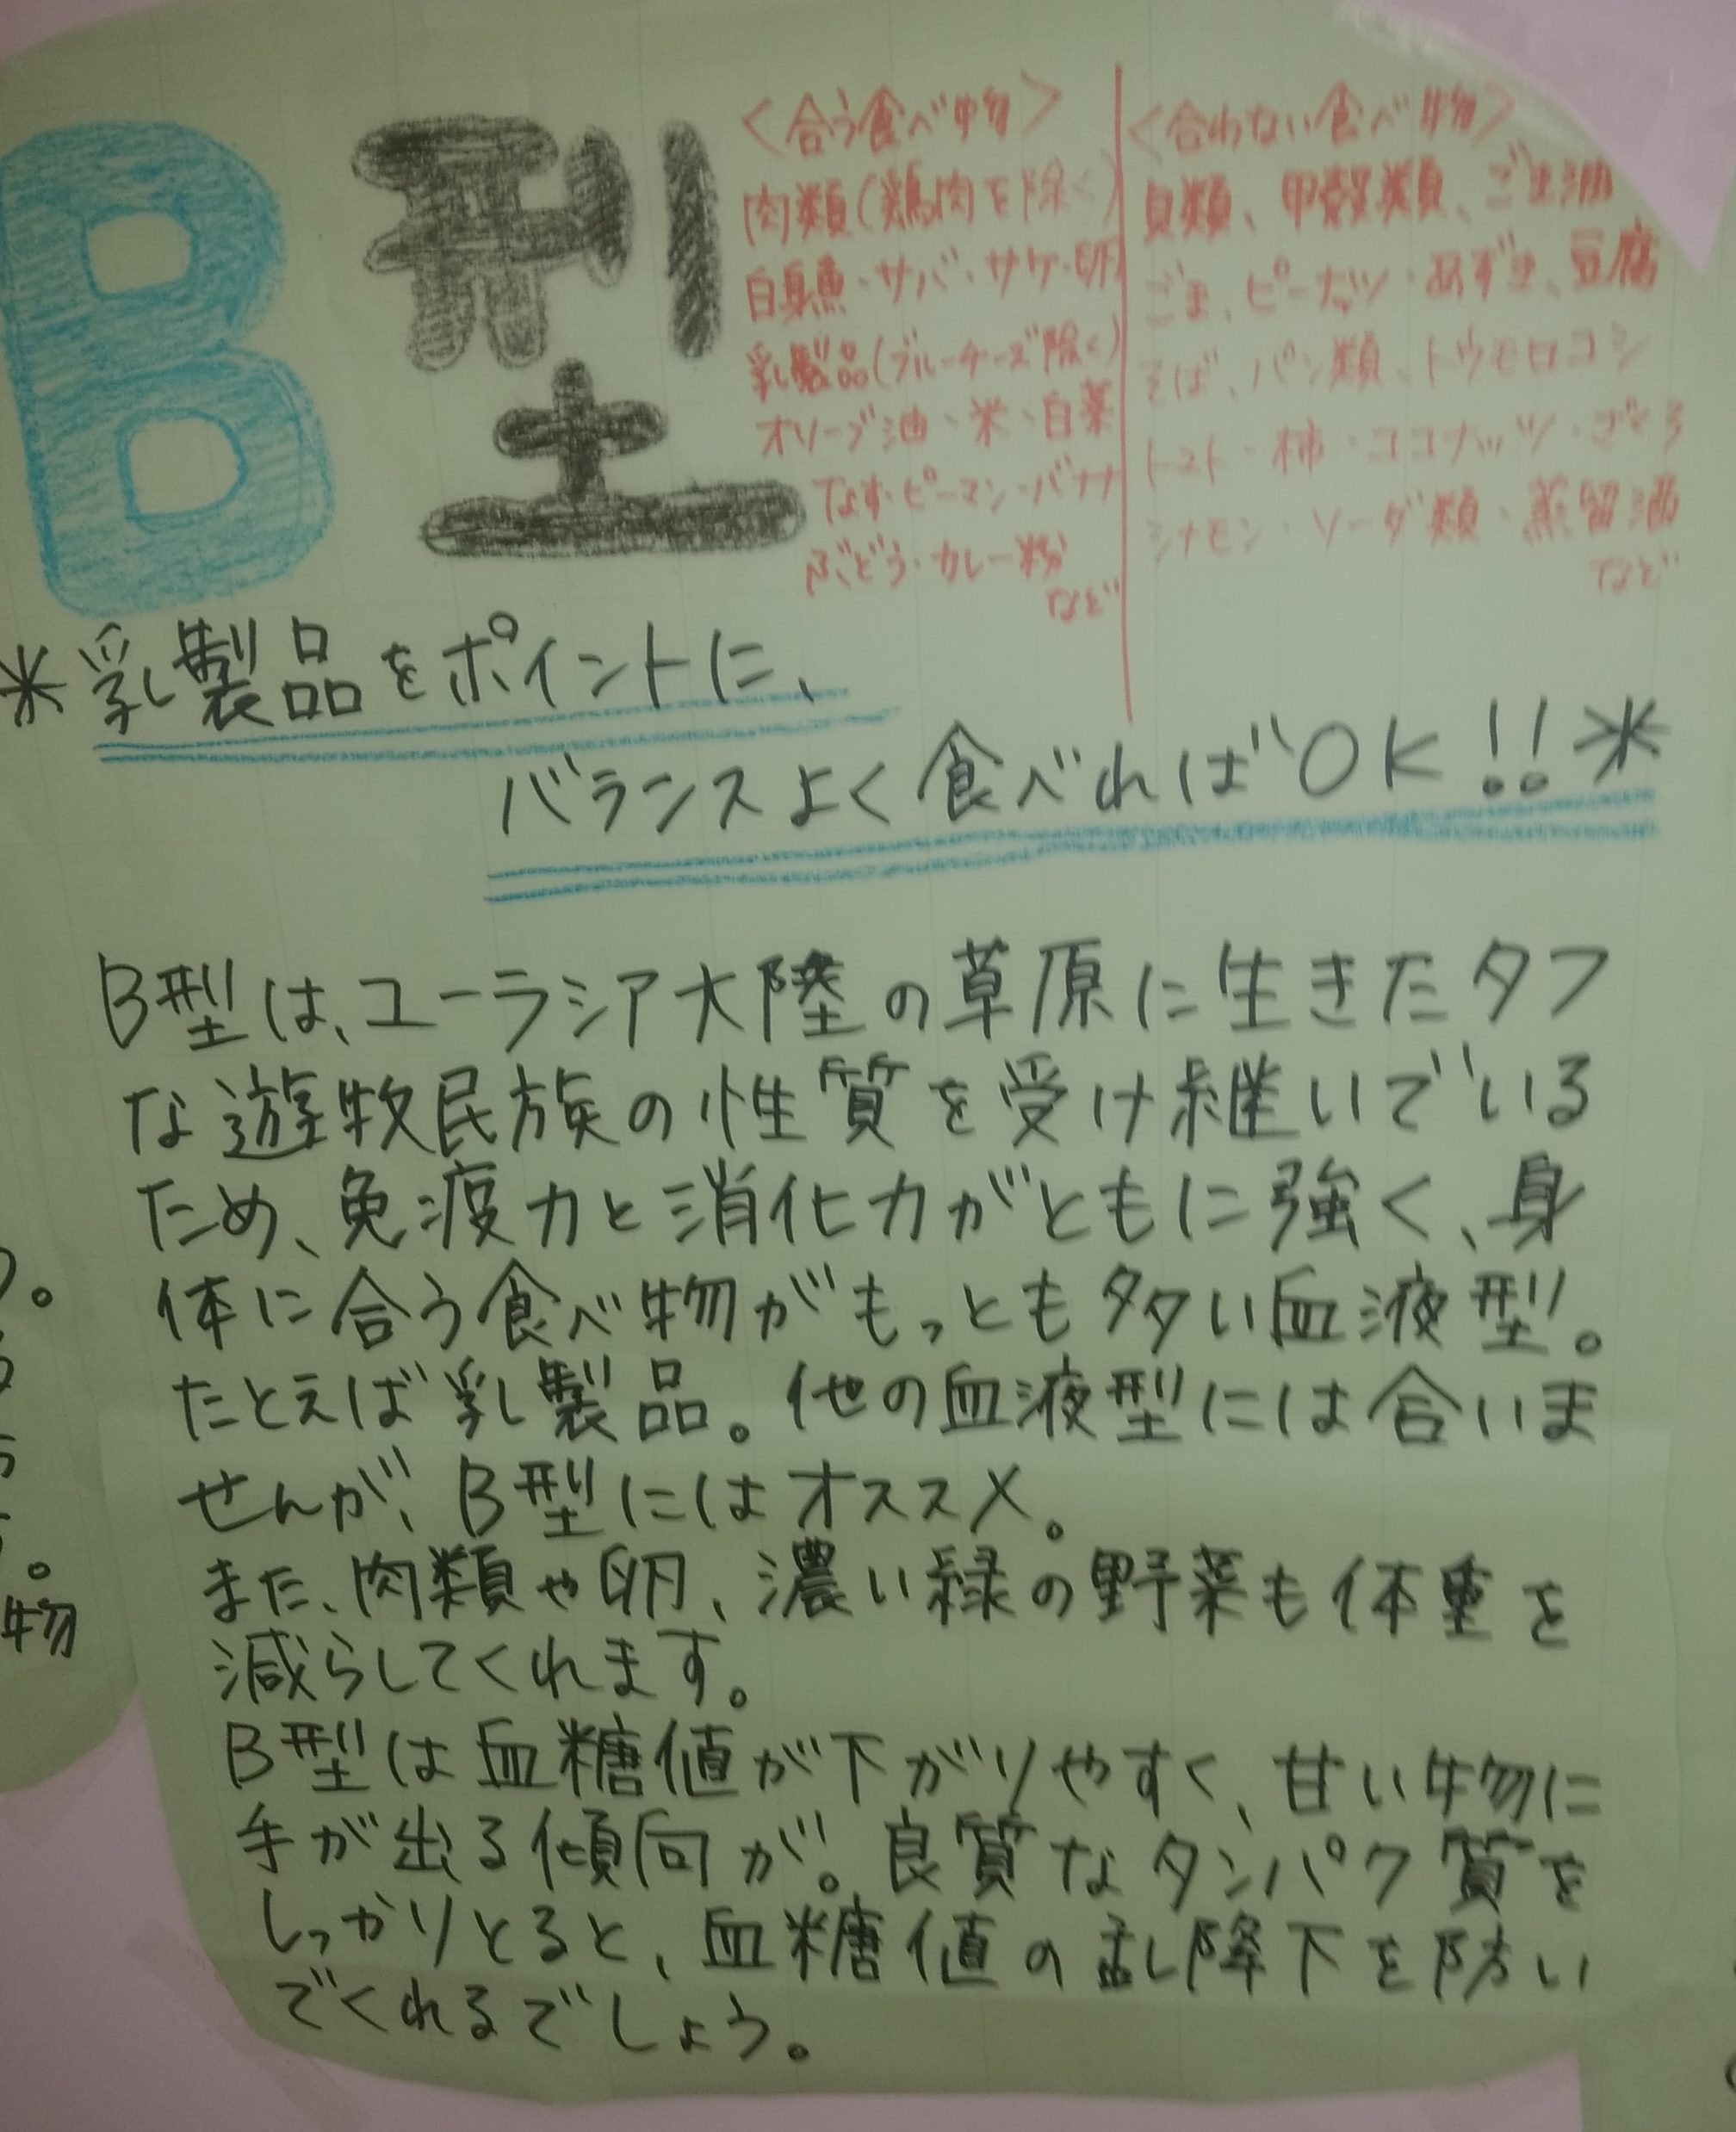 B型
<合う食べ物>
肉類(鶏肉を除く)
白身魚・サバ・サケ・卵
乳製品(ブルーチーズ除く)
オリーブ油・米・白菜
なす・ピーマン・バナナ
ぶどう・カレー粉
など
<合わない食べ物>
貝類、甲殻類、ごま油
ごま、ピーナツ・あずき、豆腐
そば、パン類、トウモロコシ
トマト・柿・ココナッツ・ざくろ
シナモン・ソーダ類・蒸留酒
など
*乳製品をポイントに、
バランスよく食べればOK!!*
B型は、ユーラシア大陸の草原に生きたタフ
な遊牧民族の性質を受け継いでいる
ため、免疫力と消化力がともに強く、身
体に合う食べ物がもっとも多い血液型。
たとえば乳製品。他の血液型には合いま
せんが、B型にはオススメ。
また、肉類や卵、濃い緑の野菜も体重を
減らしてくれます。
B型は血糖値が下がりやすく、甘い物に
手が出る傾向が。良質なタンパク質を
しっかりとると、血糖値の乱降下を防い
でくれるでしょう。
物